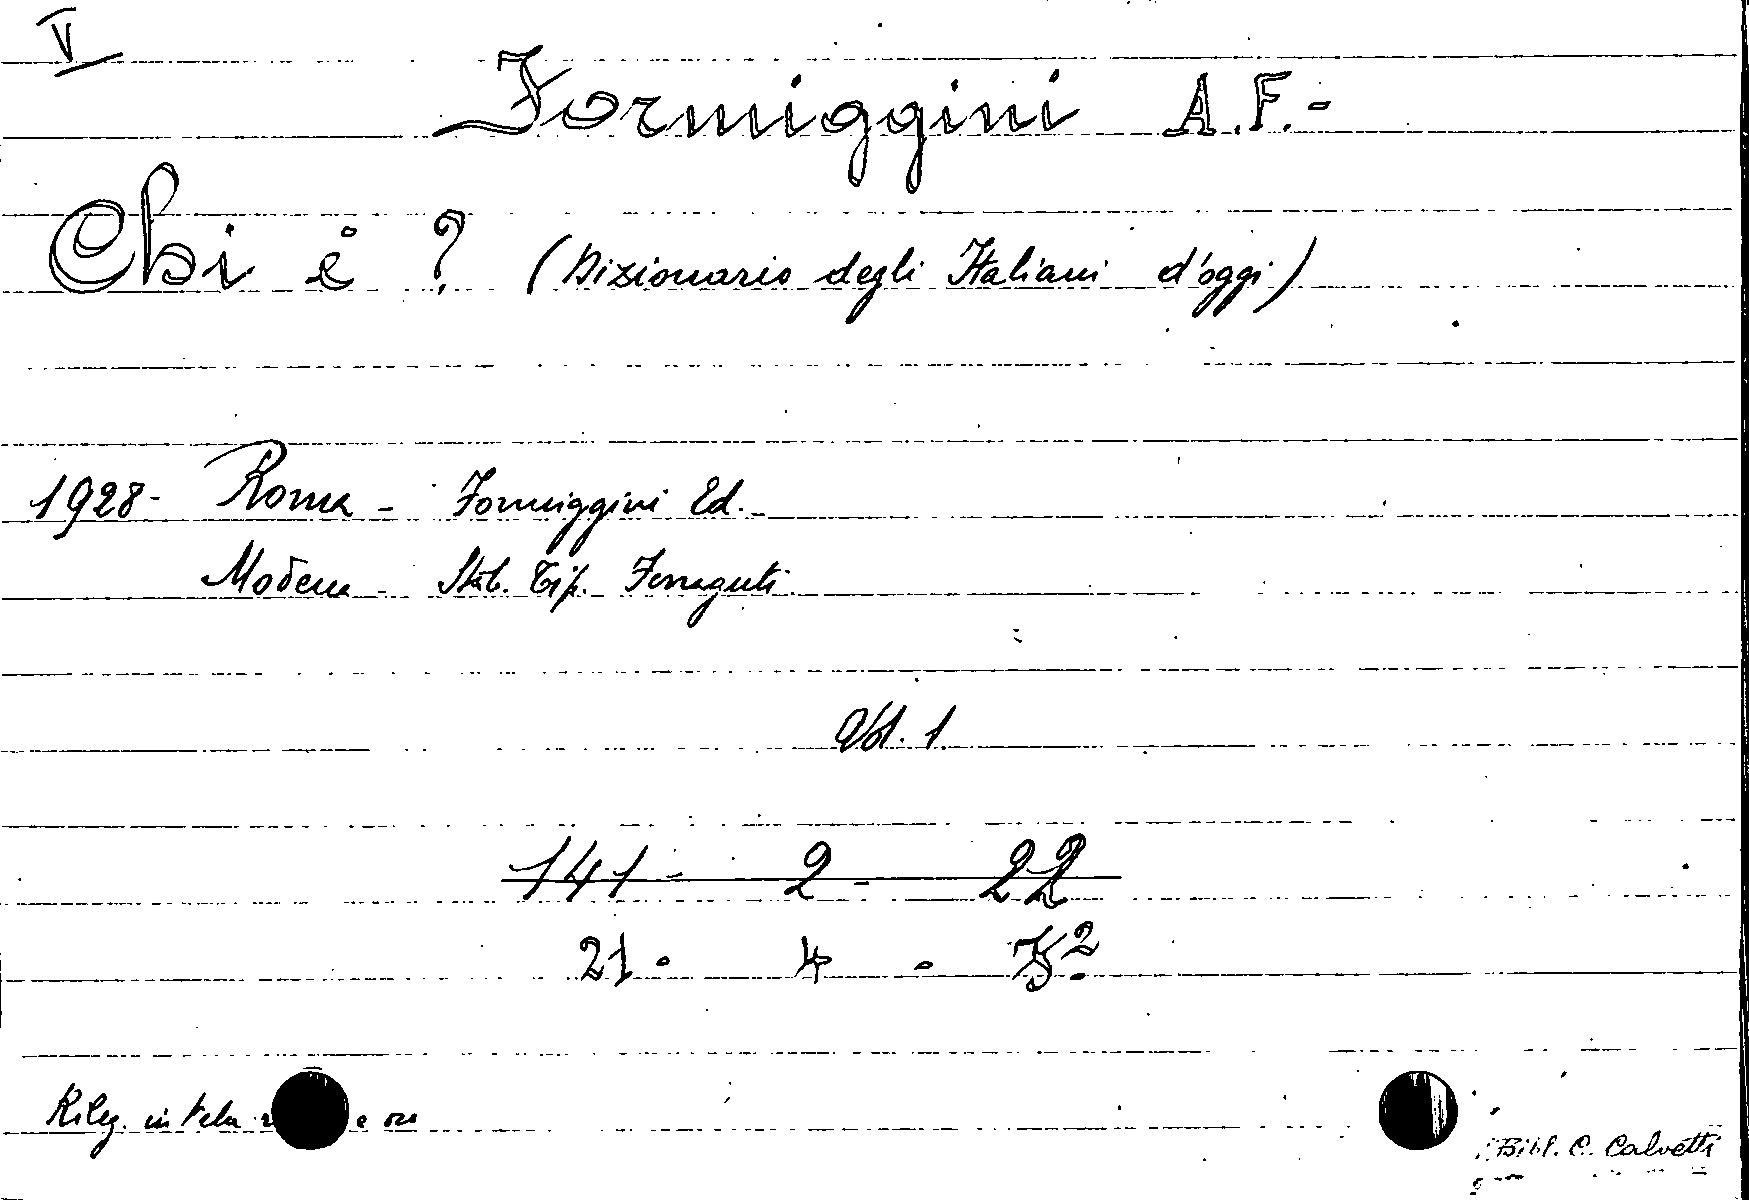 V
Formiggini A.F.-
Chi è ? (Dizionario degli Italiani d'oggi)
1928- Roma - Formiggini Ed.-
Modena - Stab. Tip. Ferraguti.
Vol. 1.
141 - 2 - 22
21 . 4 .
Rileg. in tela e oro
Bibl. C. Calvetti